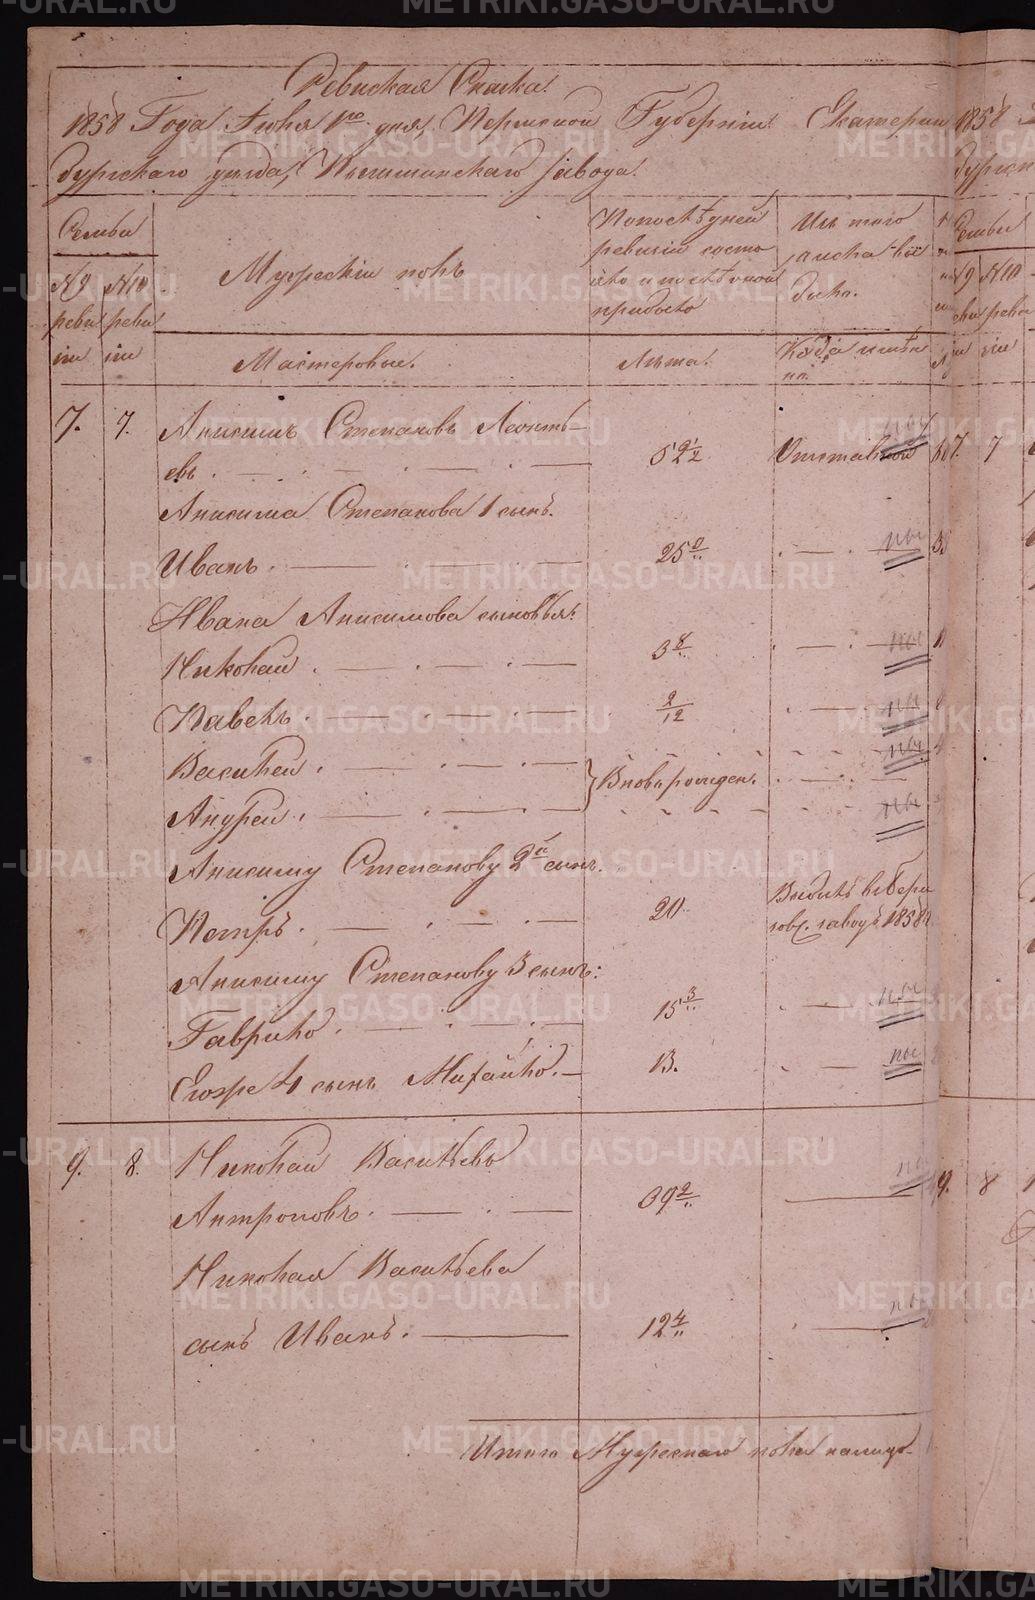 Ревиская Сказка.
1858 Года Июня 1го дня, Пермской Губерніи Екатерин
бургскаго уѣзда, Пышминскаго завода.
Семьи
№9 ревизіи
№10 ревизіи
Мужескій полъ
По послѣдней
ревизіи состо
яло и послѣ оной
прибыло
Изъ того
числа вы
было.
Мастеровые.
Лѣта.
Когда имян
но.
7. 7. Анисимъ Степановъ Леонть-
евъ. 52 1/2 Отставной
Анисима Степанова 1 сынъ.
Иванъ. 25 0/"
Ивана Анисимова сыновья:
Николай. 3 8/"
Павелъ. 2/12
Василей.
Вновь рожден.
Андрей.
Анисиму Степанову 2й сынъ.
Петръ. 20. Выбылъ въ Бере
зовс. заводъ 1858г.
Анисиму Степанову 3 сынъ:
Гаврило. 15 3/"
Егоже 4 сынъ Михайло. 13.
9. 8. Николай Васильевъ
Антроповъ. 39 2/"
Николая Васильева
сынъ Иванъ. 12 4/"
Итого Мужескаго пола налицо
METRIKI.GASO-URAL.RU